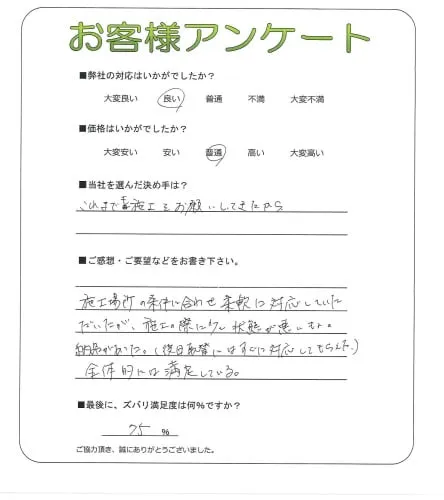 お客様アンケート
■弊社の対応はいかがでしたか?
大変良い 良い 普通 不満 大変不満
■価格はいかがでしたか?
大変安い 安い 普通 高い 大変高い
■当社を選んだ決め手は?
これまで施工をお願いしてきたから
■ご感想・ご要望などをお書き下さい。
施工場所の条件に合わせ柔軟に対応していた
だいたが、施工の際に少し状態が悪いもの
納品があった。(後日取替にはすぐに対応してもらえた。)
全体的には満足している。
■最後に、ズバリ満足度は何%ですか?
75 %
ご協力頂き、誠にありがとうございました。